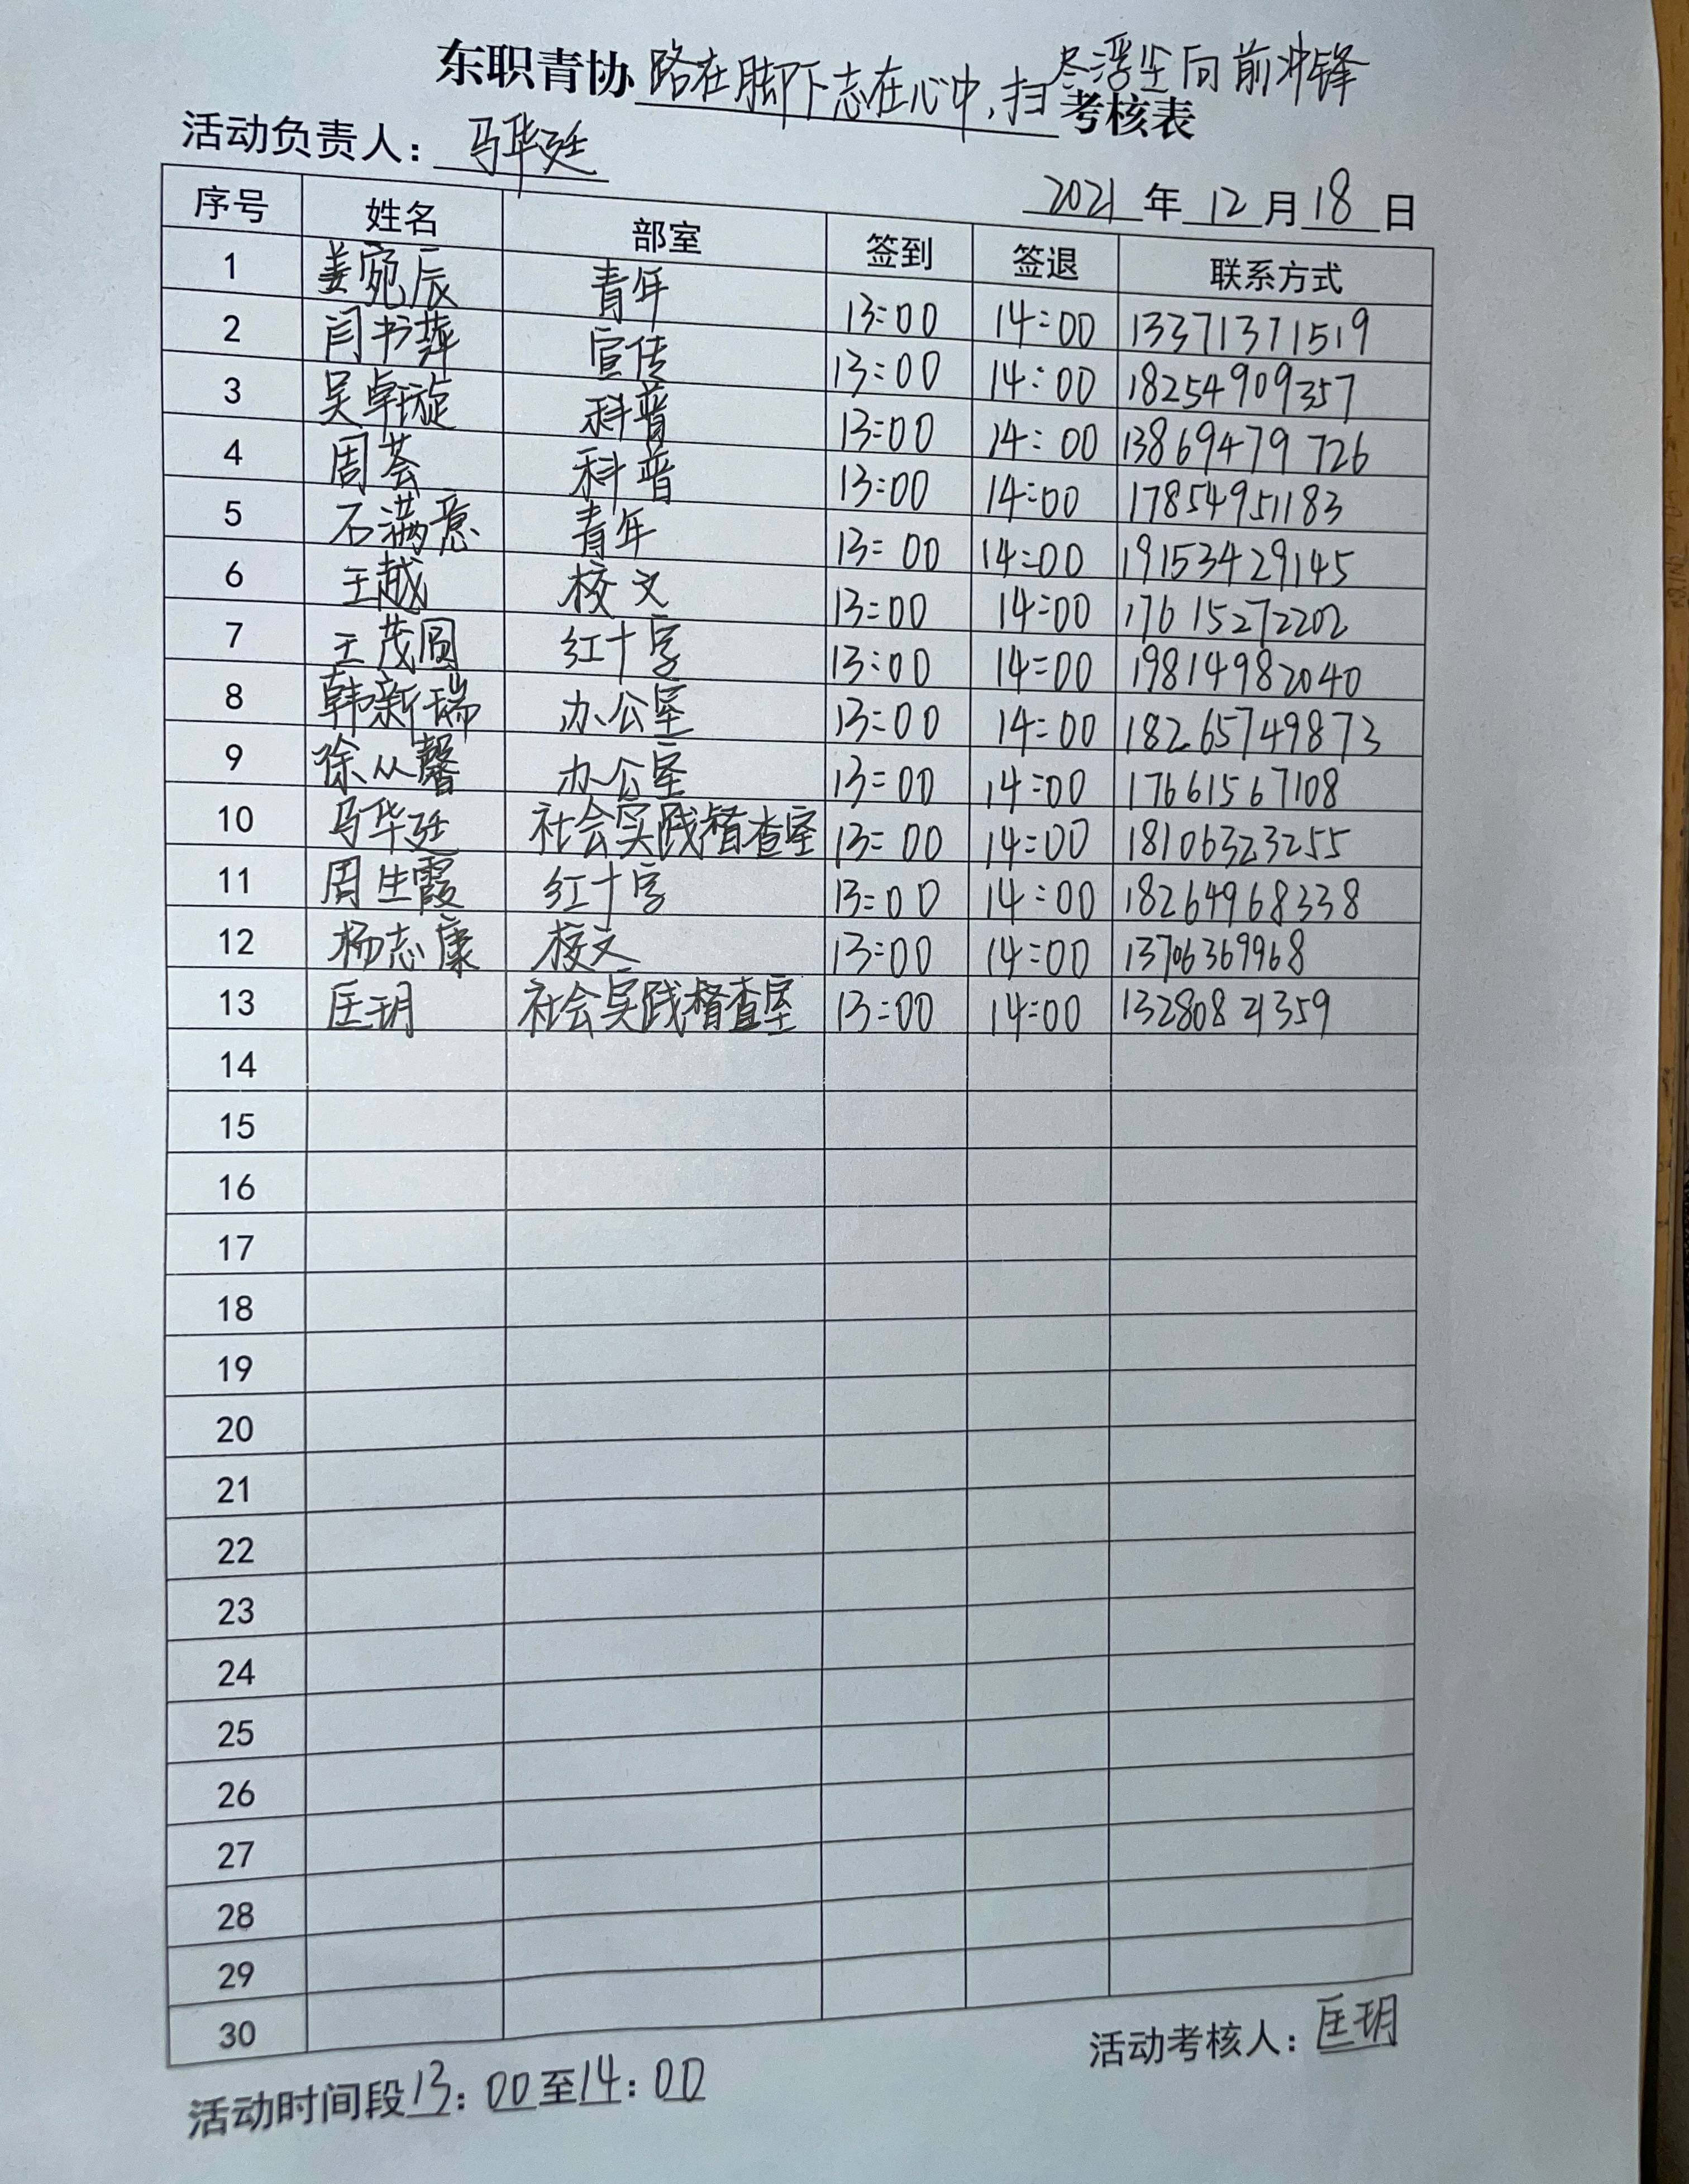 东职青协路在脚下志在心中,扫尽浮尘向前冲锋考核表
活动负责人:马华廷
2021年12月18日
序号 姓名 部室 签到 签退 联系方式
1 姜宛辰 青年 13:00 14:00 13371371519
2 闫书 宣传 13:00 14:00 18254909357
3 吴卓璇 科普 13:00 14:00 13869479726
4 周荟 科普 13:00 14:00 17854951183
5 石满意 青年 13:00 14:00 19153429145
6 王越 校文 13:00 14:00 17615272202
7 王茂圆 红十字 13:00 14:00 19814982040
8 韩新瑞 办公室 13:00 14:00 18265749873
9 徐从馨 办公室 13:00 14:00 17661567108
10 马华廷 社会实践督查室 13:00 14:00 18106323255
11 周生霞 红十字 13:00 14:00 18264968338
12 杨志康 校文 13:00 14:00 13706369968
13 匡玥 社会实践督查室 13:00 14:00 13280821359
14
15
16
17
18
19
20
21
22
23
24
25
26
27
28
29
30
活动考核人:匡玥
活动时间段13:00至14:00